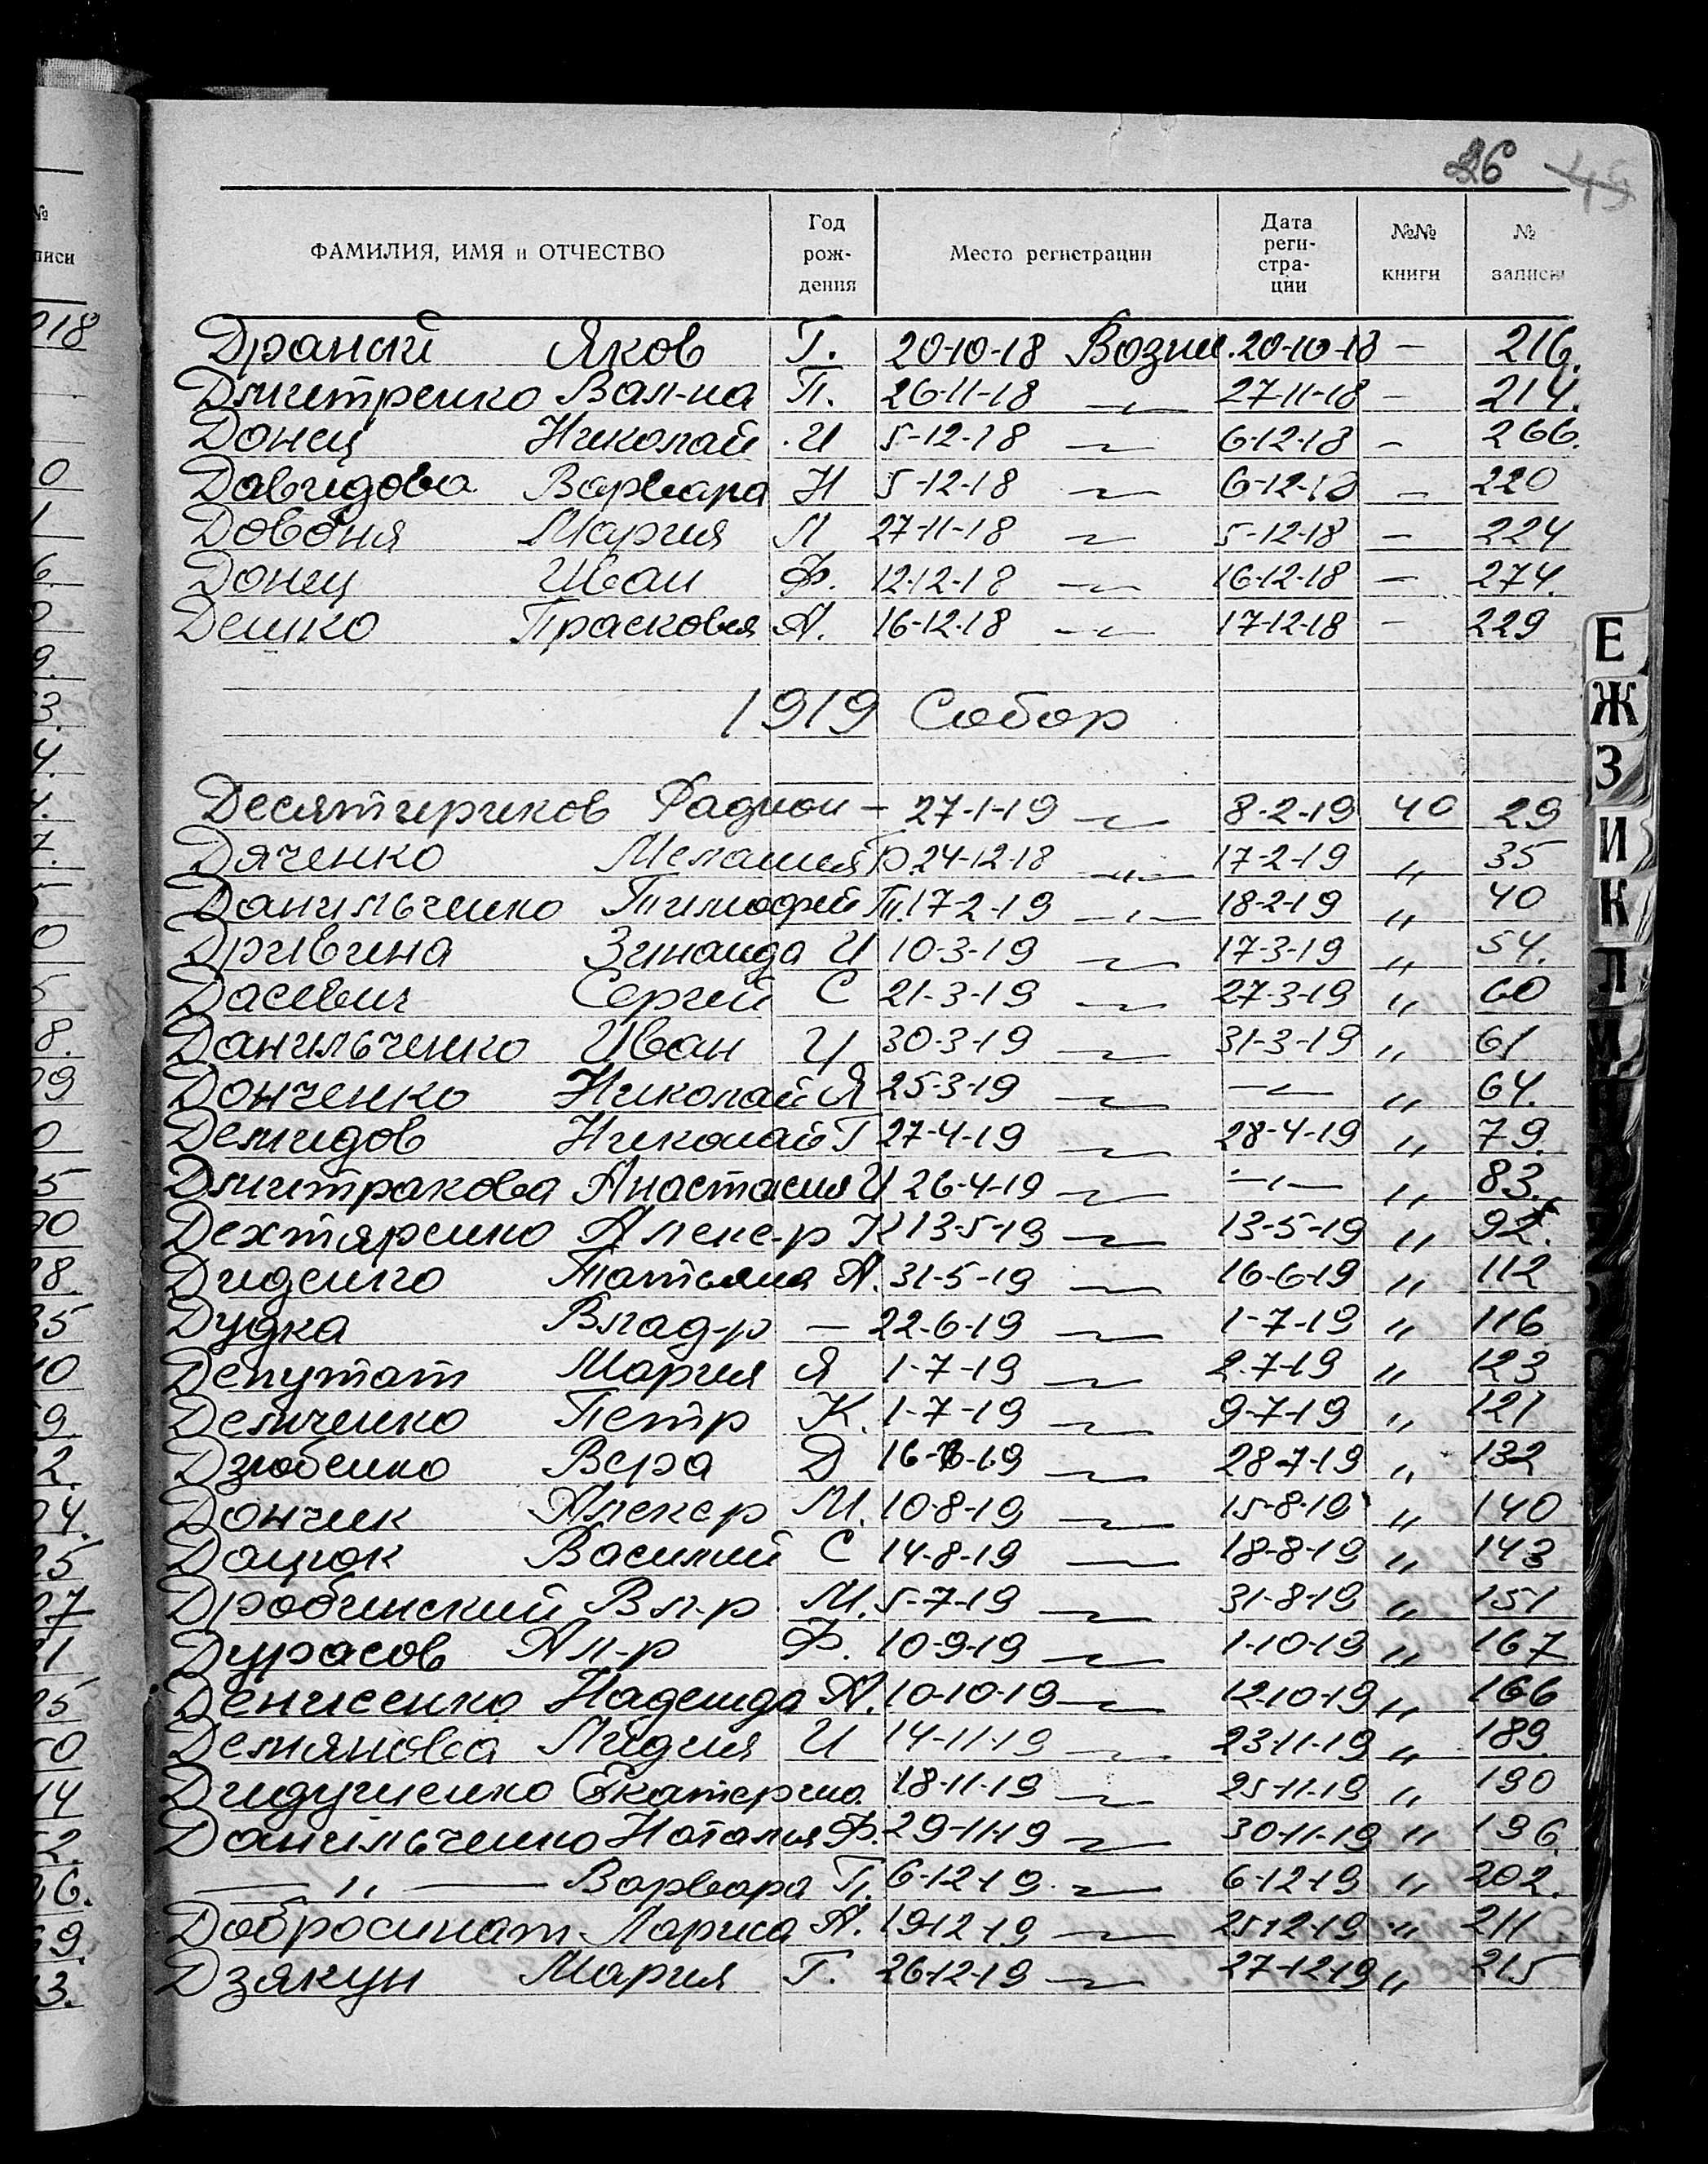 26 49
ФАМИЛИЯ, ИМЯ и ОТЧЕСТВО Год рож- дения Место регистрации Дата реги- стра- ции №№ книги № записи
Драный Яков Г. 20-10-18 Вознес. 20-10-18 — 216.
Дмитренко Вал-на П. 26-11-18 —„— 27-11-18 — 214.
Донец Николай И 5-12-18 —„— 6-12-18 — 266.
Давидова Варвара Н 5-12-18 —„— 6-12-18 — 220
Довбня Мария Л 27-11-18 —„— 5-12-18 — 224
Донец Иван Ф. 12-12-18 —„— 16-12-18 — 274.
Дешко Прасковья А. 16-12-18 —„— 17-12-18 — 229
1919 Собор
Десятириков Радион — 27-1-19 —„— 8-2-19 40 29
Дяченко Мелания Р. 24-12-18 —„— 17-2-19 „ 35
Данильченко Тимофей П. 17-2-19 —„— 18-2-19 „ 40
Дривина Зинаида И 10-3-19 —„— 17-3-19 „ 54.
Дасевич Сергей С 21-3-19 —„— 27-3-19 „ 60
Данильченко Иван И 30-3-19 —„— 31-3-19 „ 61
Донченко Николай Я 25-3-19 —„— —„— „ 64.
Демидов Николай Г 27-4-19 —„— 28-4-19 „ 79.
Дмитракова Анастасия И 26-4-19 —„— —„— „ 83.
Дехтяренко Алекс-р К 13-5-19 —„— 13-5-19 „ 92.
Диденко Татьяна А. 31-5-19 —„— 16-6-19 „ 112
Дудка Влад-р — 22-6-19 —„— 1-7-19 „ 116
Депутат Мария Я 1-7-19 —„— 2-7-19 „ 123
Демченко Петр К. 1-7-19 —„— 9-7-19 „ 121
Дзюбенко Вера Д 16-6-19 —„— 28-7-19 „ 132
Дончик Алекср М. 10-8-19 —„— 15-8-19 „ 140
Дацюк Василий С 14-8-19 —„— 18-8-19 „ 143
Дробинский Вл-р М. 5-7-19 —„— 31-8-19 „ 151
Дурасов Ал-р Ф. 10-9-19 —„— 1-10-19 „ 167
Денисенко Надежда А. 10-10-19 —„— 12-10-19 „ 166
Демянова Лидия И 14-11-19 —„— 23-11-19 „ 189.
Дидушенко Екатерина 18-11-19 —„— 25-11-19 „ 190
Данильченко Наталья Ф. 29-11-19 —„— 30-11-19 „ 196.
—„— Варвара П. 6-12-19 —„— 6-12-19 „ 202.
Добросинат Лариса А. 19-12-19 —„— 25-12-19 „ 211
Дзякун Мария Г. 26-12-19 —„— 27-12-19 „ 215
Е
Ж
З
И
К
Л